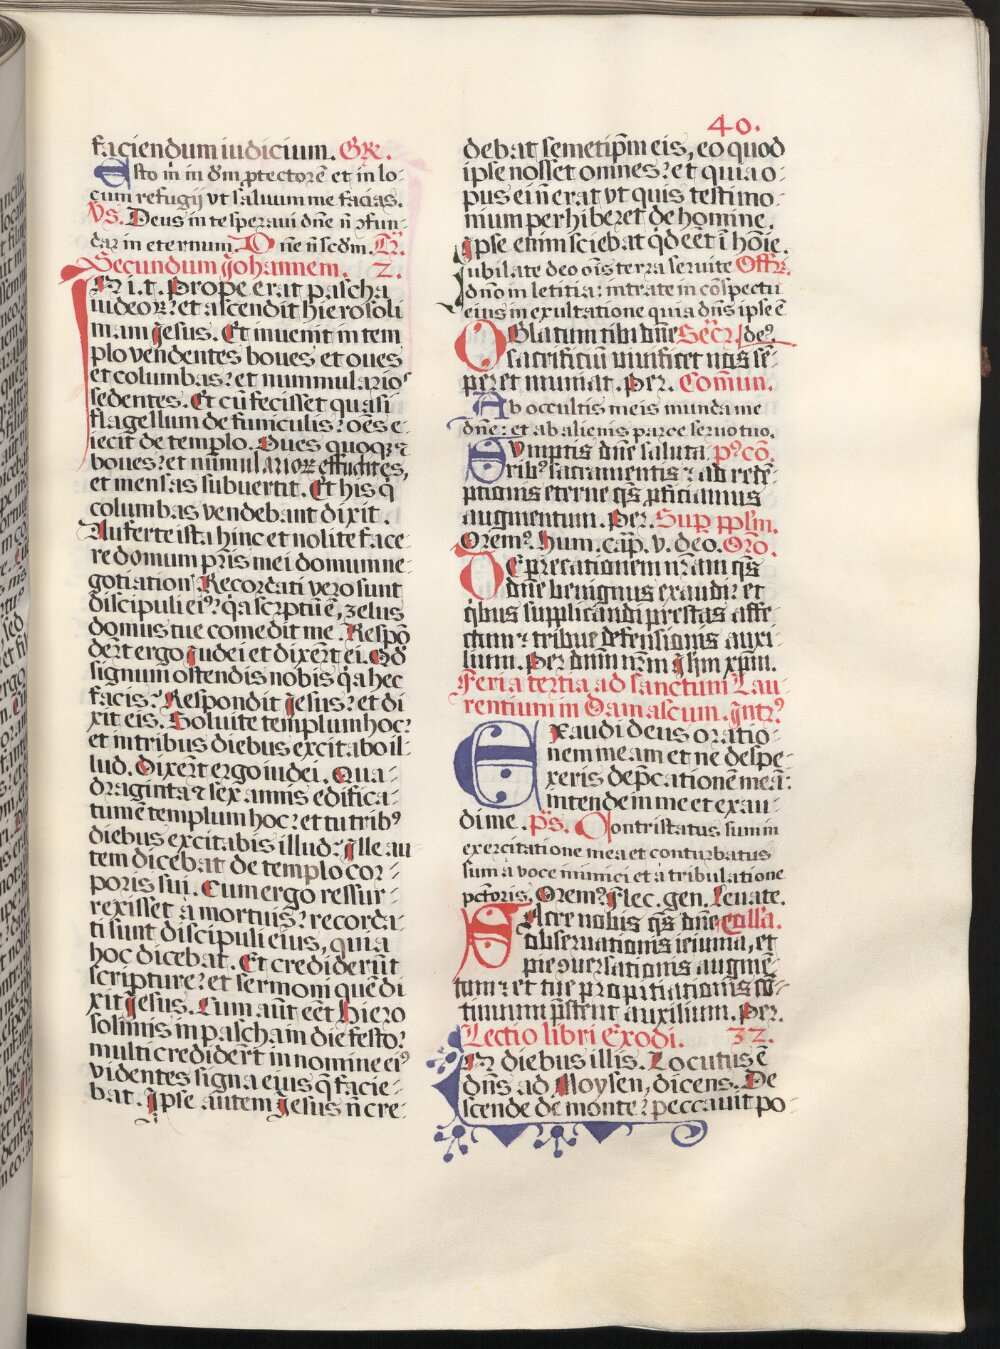 40.
faciendum iudicium. Gr̄.
Esto m̄ in d̄m ꝓtectorē et in lo-
cum refugij vt saluum me facias.
V̄s. Deus in te speraui dn̄e n̄ ↄfun-
dar in eternum. Dn̄e n̄ scd̄m. Tr̄.
Secundum Johannem. 2.
IN i. t. Prope erat pascha
iudeoꝝ: et ascendit hierosoli
mam Jesus. Et inuenit in tem
plo vendentes boues: et oues
et columbas: et nummularios
sedentes. Et cū fecisset quasi
flagellum de funiculis: oēs e-
iecit de templo. Oues quoqꝫ ⁊
boues: et numulārioꝝ effudit es,
et mensas subuertit. Et his q̄
columbas vendebant dixit.
Auferte ista hinc et nolite face-
re domum pr̄is mei domum ne-
gotiationꝰ. Recordati vero sunt
discipuli eiꝰ: qꝛa scrptū ē, zelus
domus tue comedit me. Respō
dert̄ ergo Judei et dixert̄ ei. Qd̄
signum ostendis nobis qꝛa hec
facis: Respondit Jesus: et di
xit eis. Soluite templum hoc:
et in tribus diebus excitabo il-
lud. Dixert̄ ergo iudei. Qua-
draginta ⁊ sex annis edifica-
tum ē templum hoc: et tu tribꝰ
diebus excitabis illud: Ille au
tem dicebat de templo cor-
poris sui. Cum ergo resur-
rexisset a mortuis: recorda-
ti sunt discipuli eius, quia
hoc dicebat. Et crediderūt
scripture: et sermoni quē di
xit Jesus. Cum aūt eēt hiero
solimis in pascha in die festo:
multi credidert̄ in nomine eiꝰ
videntes signa eius q̄ facie-
bat. Ipse autem Jesus n̄ cre-
debat semetip̄m eis, eo quod
ipse nosset omnes: et quia o-
pus ei n̄ erat vt quis testimo-
nium perhiberet de homine.
Ipse enim sciebat qd̄ eēt ī hōie.
Iubilate deo oīs terra seruite Offr̄.
dn̄o in letitia: intrate in cōspectu
eius in exultatione quia dn̄s ipse ē
OBlatum tibi dn̄e Secr̄. deꝰ.
sacrificiū viuificet nos sē-
per et muniat. Per. Com̄un.
Ab occultis meis munda me
dn̄e: et ab alienis parce seruo tuo.
SVmptis dn̄e saluta pꝰcō.
ribꝰ sacramentis: ad redē-
ptionis eterne qs̄ ꝓficiamus
augmentum. Per. Sup ppl̄m.
Oremꝰ. Hum. cap̄. v. deo. Orō.
DEprecationem nr̄am qs̄
dn̄e benignus exaudi: et
qibus supplicandi prestas affe-
ctum: tribue defensionis auxi-
lium. Per dn̄m nr̄m Jhm xp̄m.
Feria tertia ad sanctum Lau-
rentium in Damascum. Intrꝰ
Exaudi deus oratio-
nem meam et ne despe-
xeris dep̄cationē meā:
intende in me et exau-
di me. p̄s. Contristatus sum in
exercitatione mea et conturbatus
sum a voce inimici et a tribulatione
pctōris. Oremꝰ. Flec. gen. Leuate.
SAcre nobis qs̄ dn̄e Colla.
obseruationis ieiunia, et
pie ↄuersationis augmē-
tum: et tue propitiationis cō-
tinuum p̄stent auxilium. Per.
Lectio libri Exodi. 32.
IN diebus illis. Locutus ē
dn̄s ad Moysen, dicens. De
scende de monte: peccauit po-